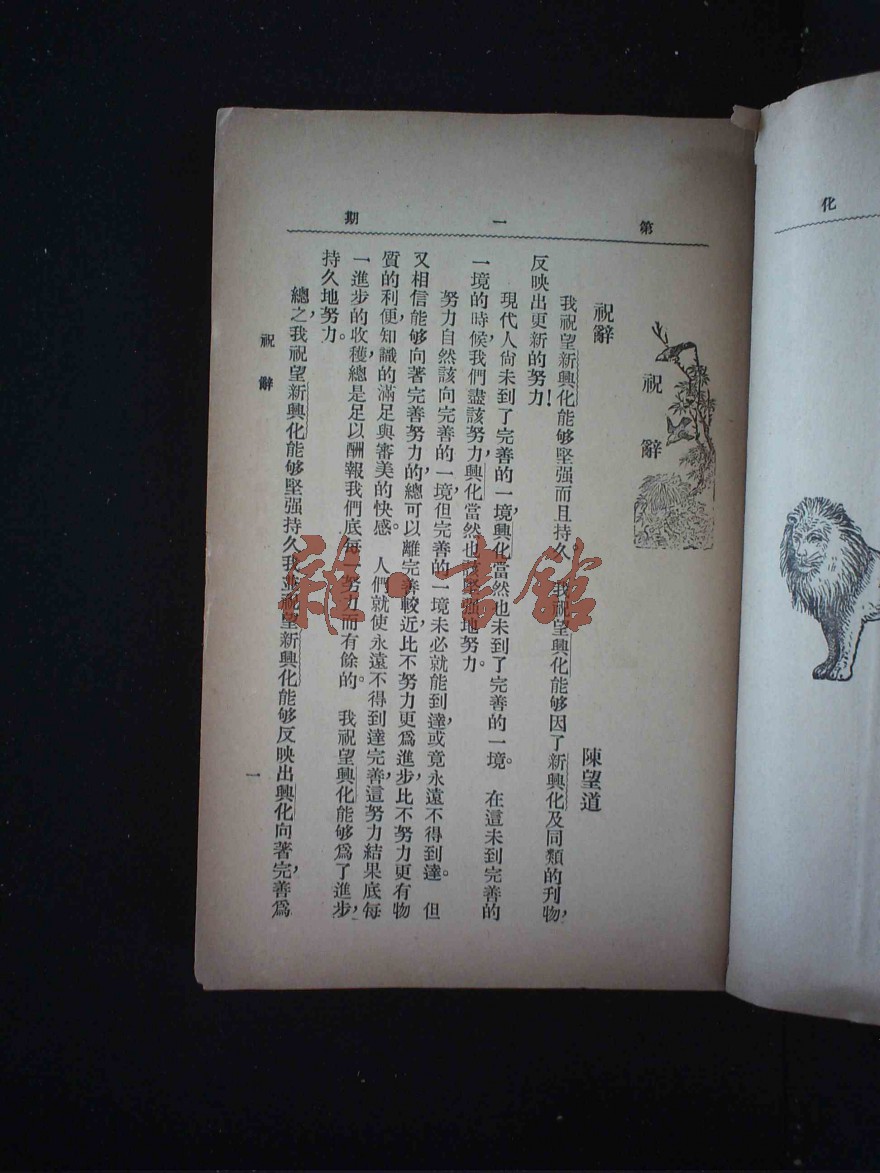 化
第一期
祝辭
祝辭
陳望道
我祝望新興化能够堅强而且持久，我祝望興化能够因了新興化及同類的刋物，
反映出更新的努力！
現代人尙未到了完善的一境，興化當然也未到了完善的一境。 在這未到完善的
一境的時候，我們盡該努力，興化當然也該堅强地努力。
努力自然該向完善的一境，但完善的一境未必就能到達，或竟永遠不得到達。 但
又相信能够向著完善努力的，總可以離完善較近，比不努力更爲進步，比不努力更有物
質的利便，知識的滿足與審美的快感。 人們就使永遠不得到達完善，這努力結果底每
一進步的收穫，總是足以酬報我們底每一努力而有餘的。 我祝望興化能够爲了進步，
持久地努力。
總之，我祝望新興化能够堅强持久，我並祝望新興化能够反映出興化向著完善，爲
祝辭
一
雜·書館